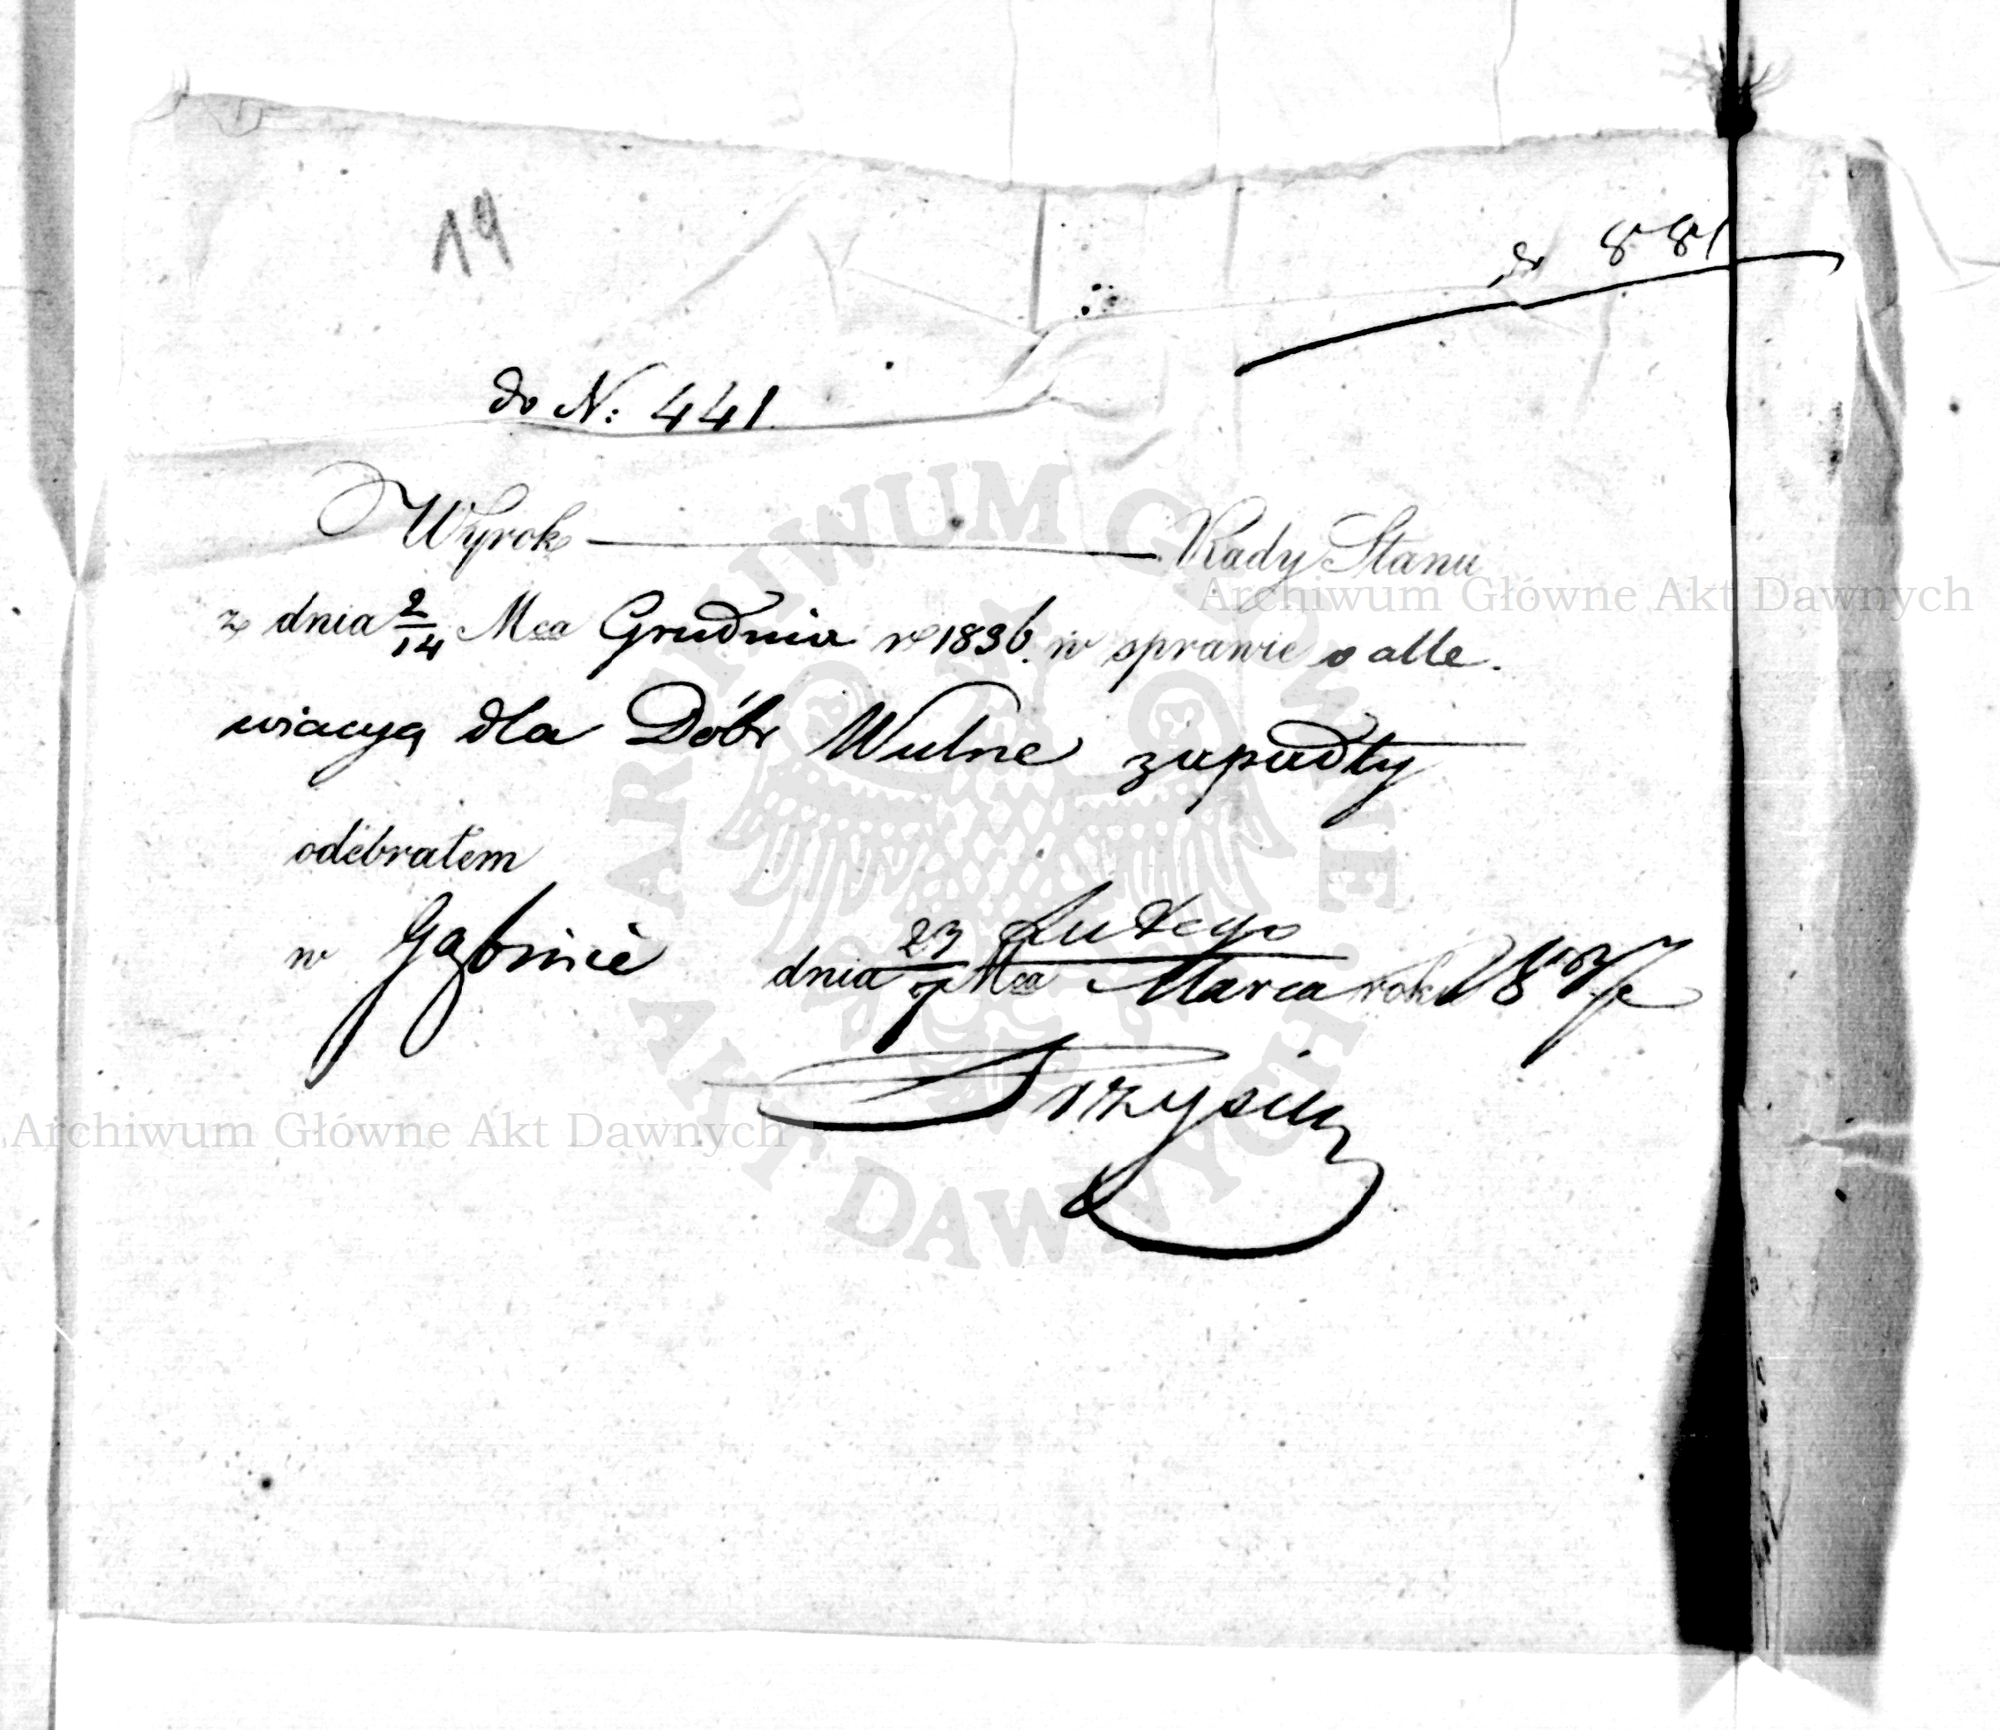 19
do 881
do N: 441.
Wyrok Rady Stanu
z dnia 2/14 Mca Grudnia r 1836. w sprawie o alle-
wiacyą dla Dóbr Wulne zapadły
odebrałem
w Gąbinie dnia 23 Lutego / 7 Mca Marca roku 1837
Archiwum Główne Akt Dawnych
Archiwum Główne Akt Dawnych
ARCHIWUM GŁÓWNE AKT DAWNYCH